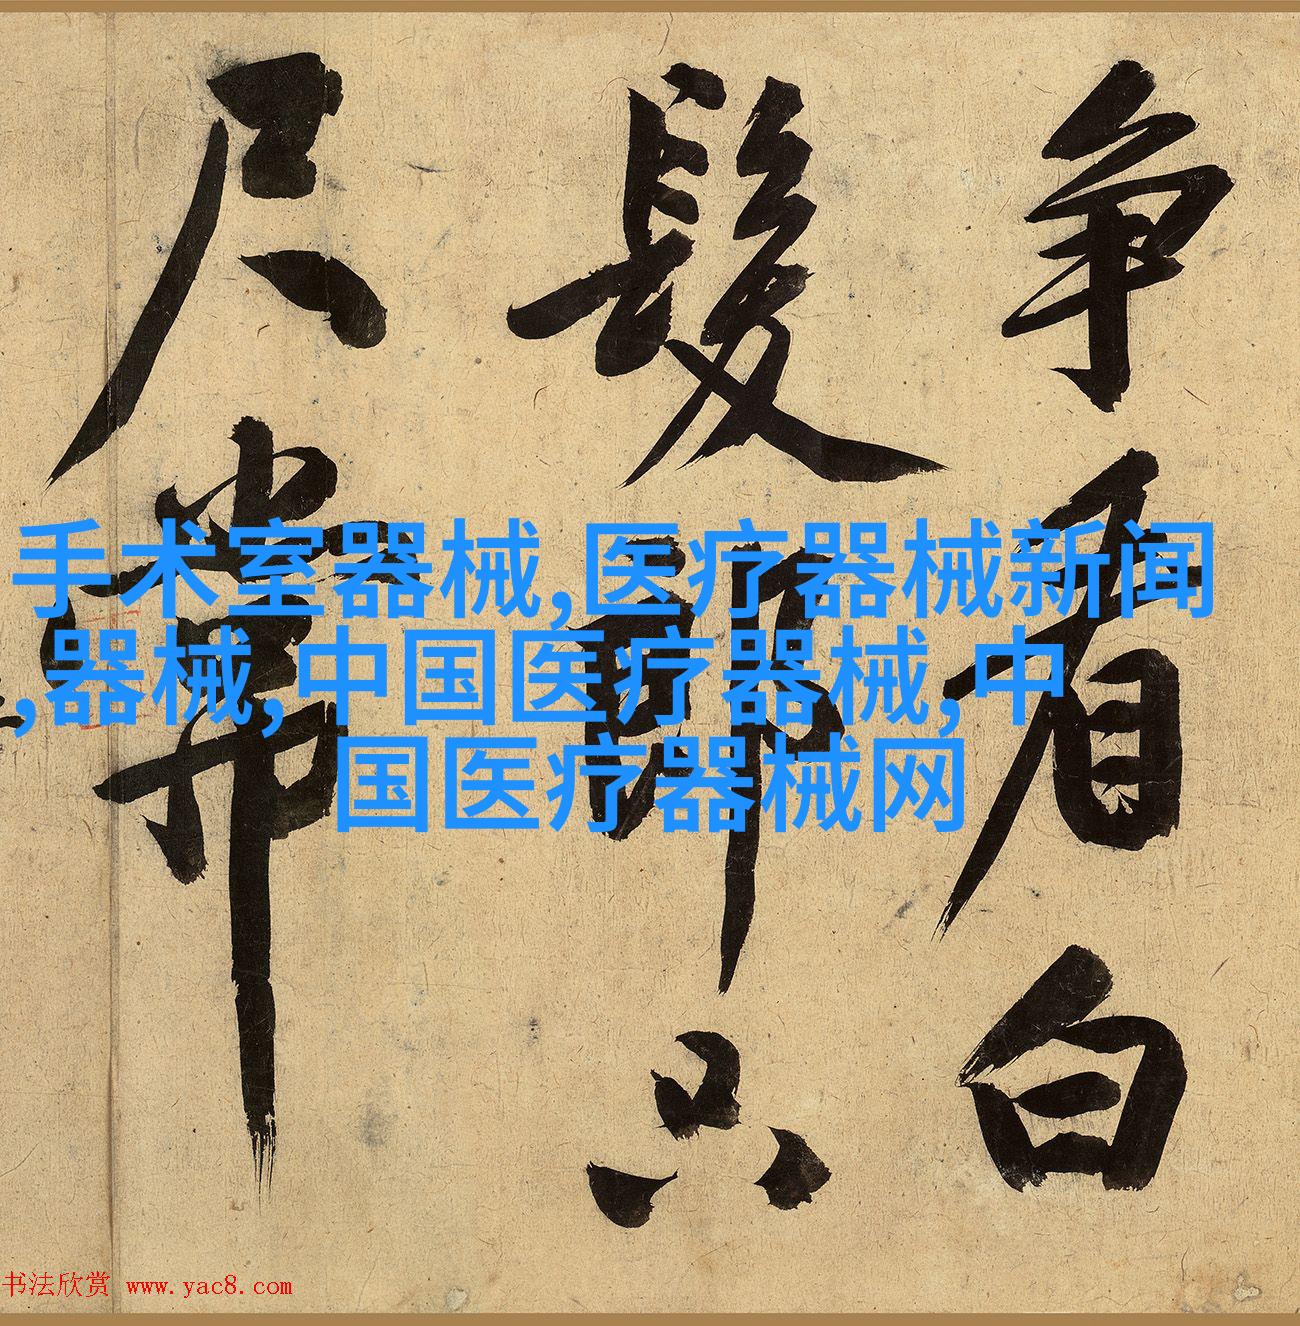 争看白
髮郎只
尺常
手术室器械,医疗器械新闻
,器械,中国医疗器械,中
国医疗器械网
书法欣赏 www.yac8.com